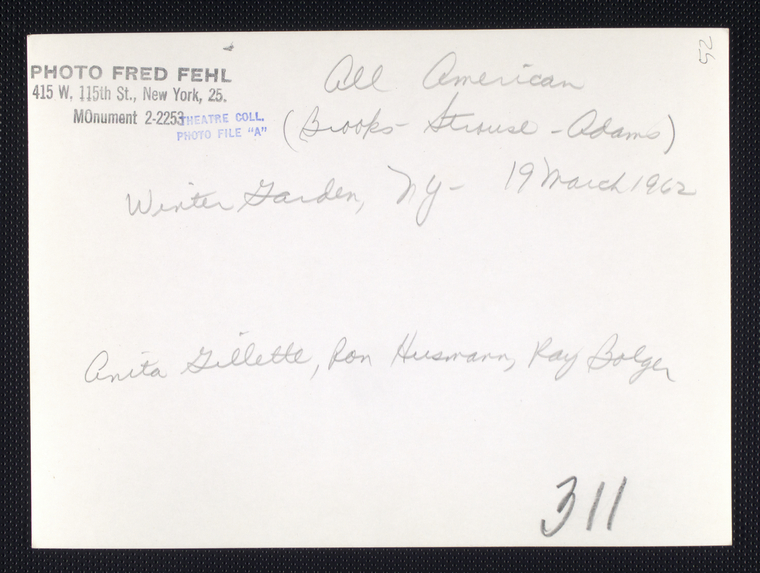 52
PHOTO FRED FEHL
415 W. 115th St., New York, 25.
MOnument 2-2253
THEATRE COLL.
PHOTO FILE "A"
All American
(Brooks - Strouse - Adams)
Winter Garden, NY - 19 March 1962
Anita Gillette, Ron Husmann, Ray Bolger
311